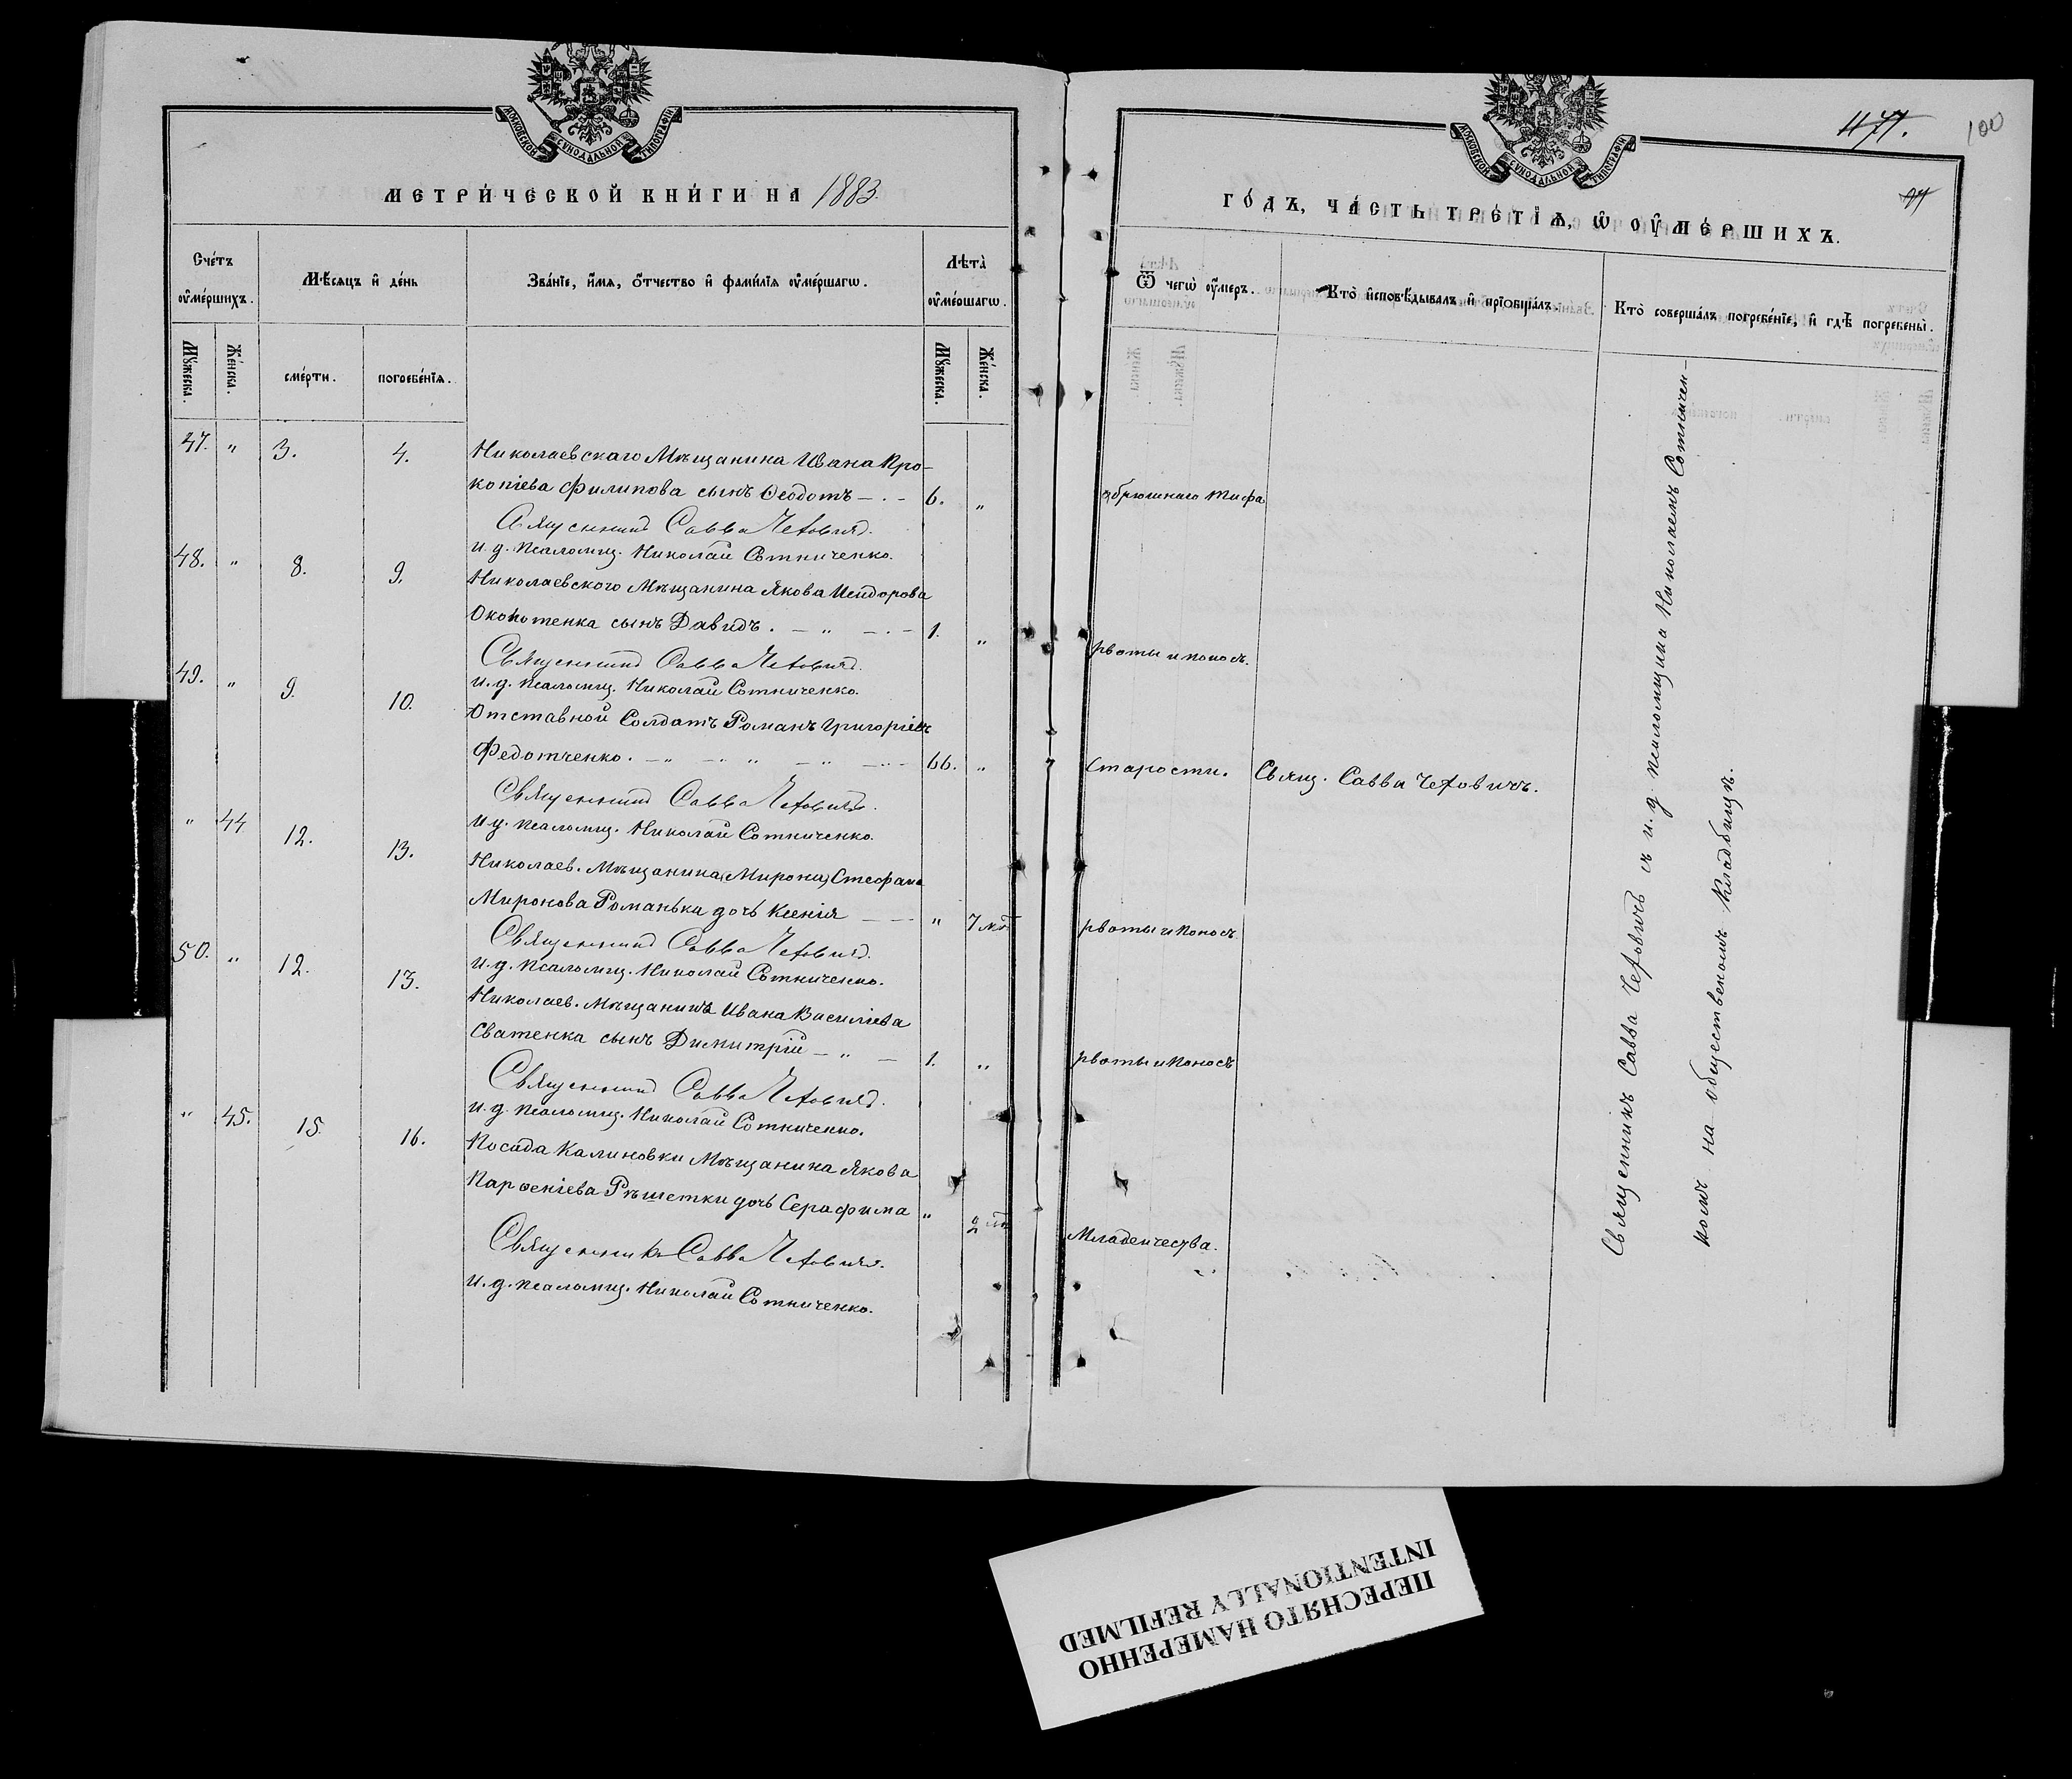 МОСКОВСКОЙ СѴНОДАЛЬНОЙ ТИПОГРАФІИ
МЕТРИ́ЧЕСКОЙ КНИ́ГИ НА 1883.
Сче́тъ оу҆ме́ршихъ.
Мѣ́сяцъ и҆ де́нь
Зва́нїе, и҆́мя, ѻ҆́тчество и҆ фами́лїя оу҆ме́ршагѡ.
Лѣта̀ оу҆ме́ршагѡ.
Мꙋ́жеска. Же́нска.
сме́рти. погребе́нїя.
Мꙋ́жеска. Же́нска.
47. " 3. 4. Николаевскаго Мѣщанина Ивана Про-
копіева Филипова сынъ Ѳеодотъ 6. "
Священникъ Савва Чехович.
и. д. псаломщ. Николай Сотниченко.
48. " 8. 9. Николаевского Мѣщанина Якова Исидорова
сынъ Давидъ. 1. "
Священникъ Савва Чехович.
и. д. псаломщ. Николай Сотниченко.
49. " 9. 10. Отставной Солдатъ Романъ Григоріевъ
Федотченко. 66. "
Священникъ Савва Чехович.
и. д. псаломщ. Николай Сотниченко.
" 44 12. 13. Николаев. Мѣщанина (Мирона) Стефана
Миронова Романька дочь Ксенія " 7 мѣс
Священникъ Савва Чехович.
и. д. псаломщ. Николай Сотниченко.
50. " 12. 13. Николаев. Мѣщанина Ивана Василіева
Сватенка сынъ Димитрій 1. "
Священникъ Савва Чехович.
и. д. псаломщ. Николай Сотниченко.
" 45. 15. 16. Посада Калиновки Мѣщанина Якова
Парѳеніева Рѣшетки дочь Серафима "
Священникъ Савва Чехович.
и. д. псаломщ. Николай Сотниченко.
МОСКОВСКОЙ СѴНОДАЛЬНОЙ ТИПОГРАФІИ
100
ГО́ДЪ, ЧА́СТЬ ТРЕ́ТЇѦ, Ѡ҆ ОУ҆МЕ́РШИХЪ.
Ѿ чегѡ̀ оу҆́меръ.
Кто̀ и҆сповѣ́дывалъ и҆ прїѻбща́лъ.
Кто̀ соверша́лъ погребе́нїе, и҆ гдѣ̀ погребены̀.
брюшнаго тифа
рвоты и поносъ.
Старости. Свящ. Савва Чеховичъ.
рвоты и поносъ
рвоты и поносъ
Младенчества.
Священникъ Савва Чеховичъ съ и. д. псаломщика Николаемъ Сотничен-
комъ на общественомъ кладбищѣ.
ПЕРЕСНЯТО НАМЕРЕННО
INTENTIONALLY REFILMED